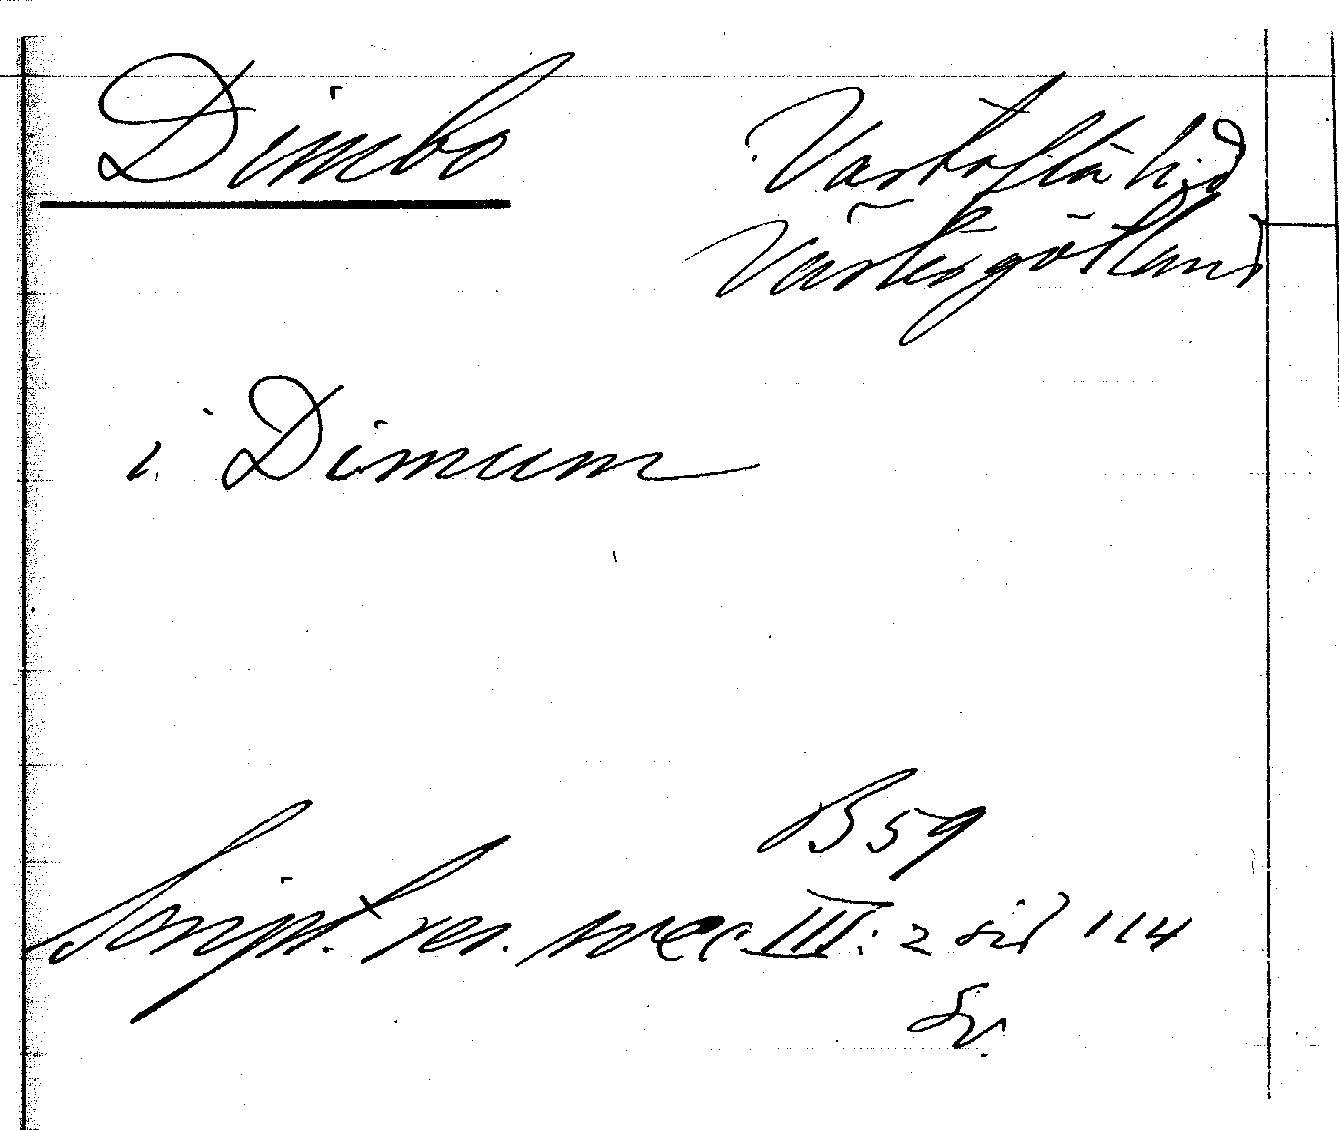 Dimbo
Vartofta hd
Västergötland
i Dimum
B 59
Script. rer. svec III: 2 sid 114